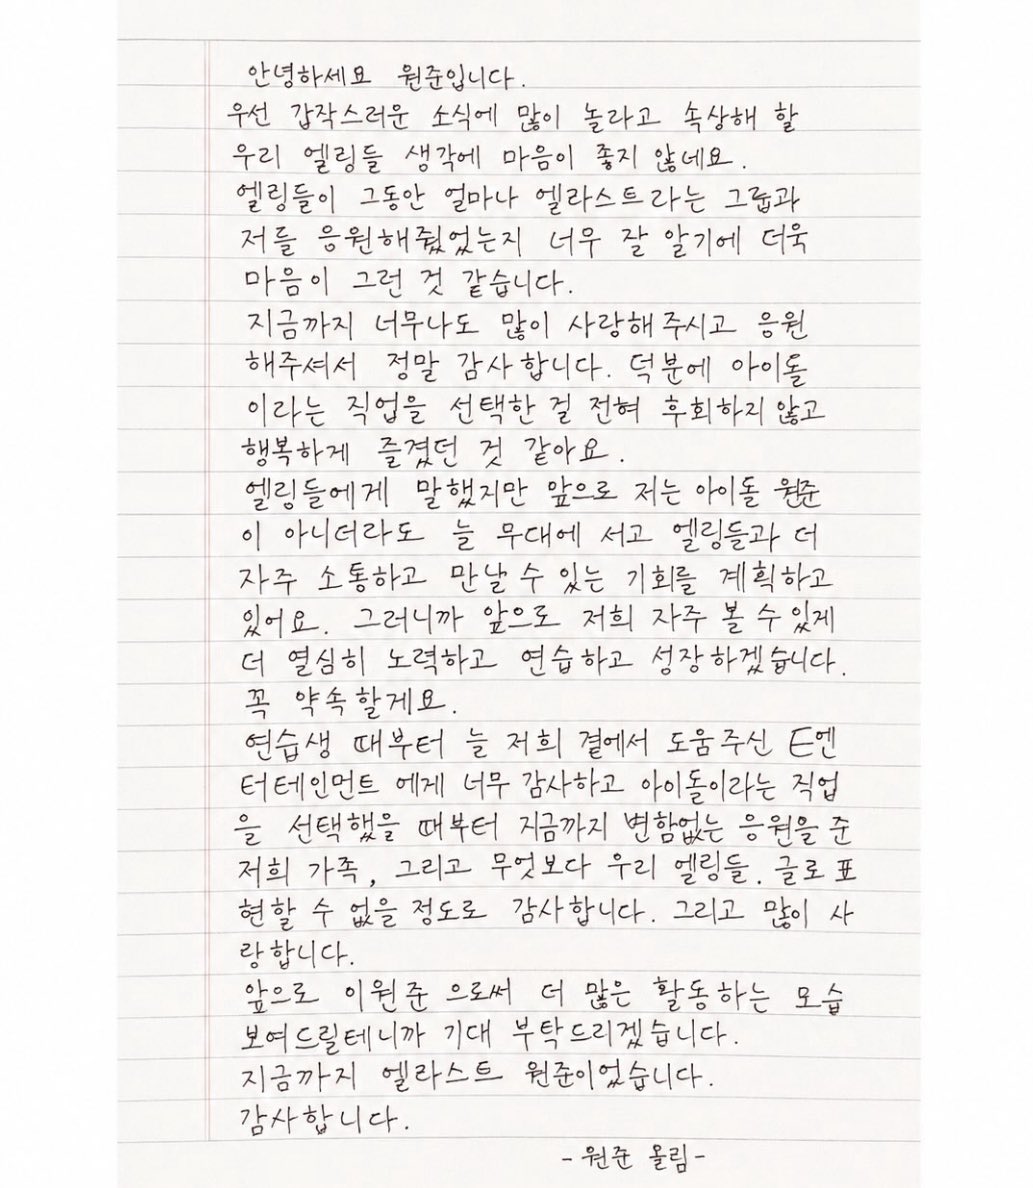 안녕하세요 원준입니다.
우선 갑작스러운 소식에 많이 놀라고 속상해 할
우리 엘링들 생각에 마음이 좋지 않네요.
엘링들이 그동안 얼마나 엘라스트라는 그룹과
저를 응원해줬었는지 너무 잘 알기에 더욱
마음이 그런 것 같습니다.
지금까지 너무나도 많이 사랑해주시고 응원
해주셔서 정말 감사합니다. 덕분에 아이돌
이라는 직업을 선택한 걸 전혀 후회하지 않고
행복하게 즐겼던 것 같아요.
엘링들에게 말했지만 앞으로 저는 아이돌 원준
이 아니더라도 늘 무대에 서고 엘링들과 더
자주 소통하고 만날 수 있는 기회를 계획하고
있어요. 그러니까 앞으로 저희 자주 볼 수 있게
더 열심히 노력하고 연습하고 성장하겠습니다.
꼭 약속할게요.
연습생 때부터 늘 저희 곁에서 도움주신 E엔
터테인먼트 에게 너무 감사하고 아이돌이라는 직업
을 선택했을 때부터 지금까지 변함없는 응원을 준
저희 가족, 그리고 무엇보다 우리 엘링들. 글로 표
현할 수 없을 정도로 감사합니다. 그리고 많이 사
랑합니다.
앞으로 이원준 으로써 더 많은 활동하는 모습
보여드릴테니까 기대 부탁드리겠습니다.
지금까지 엘라스트 원준이었습니다.
감사합니다.
- 원준 올림 -